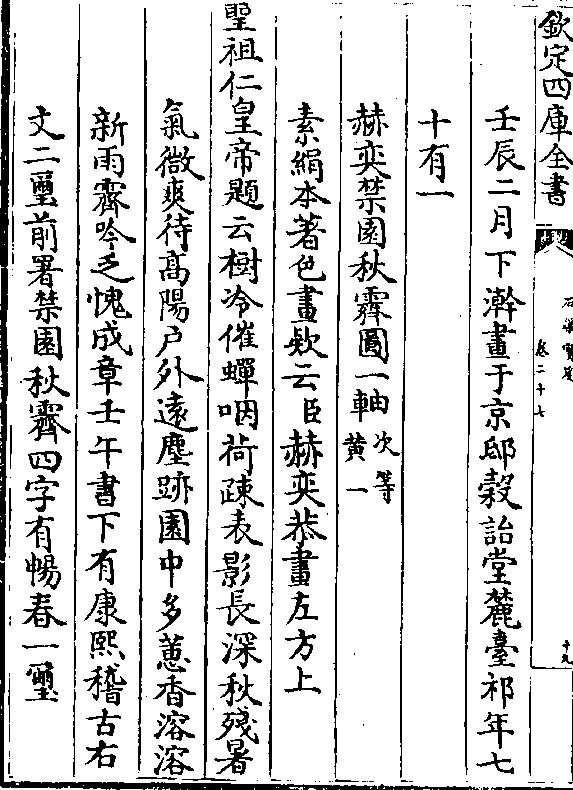 欽定四庫全書
石渠寶笈
卷二十七
十九
壬辰二月下澣畫于京邸穀詒堂麓臺祁年七
十有一
赫奕禁園秋霽圖一軸次等黃一
素絹本著色畫欵云臣赫奕恭畫左方上
聖祖仁皇帝題云樹冷催蟬咽荷疎表影長深秋殘暑
氣微爽待高陽户外遠塵跡園中多蕙香溶溶
新雨霽吟乏愧成章壬午書下有康熙稽古右
文二璽前署禁園秋霽四字有暢春一璽